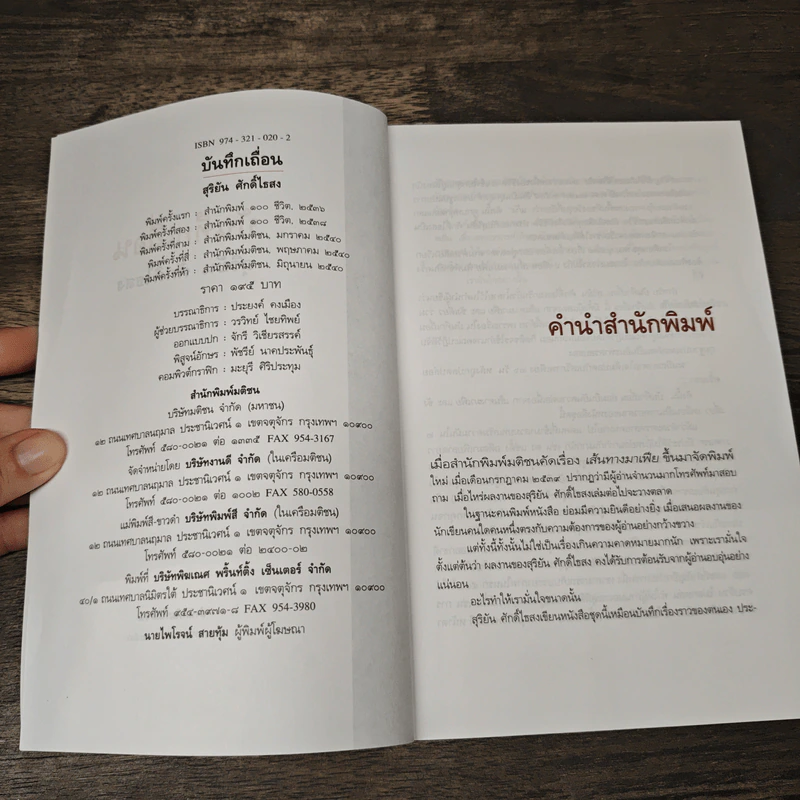 ISBN 974 - 321 - 020 - 2
บันทึกเถื่อน
สุริยัน ศักดิ์ไธสง
พิมพ์ครั้งแรก : สำนักพิมพ์ ๑๐๐ ชีวิต, ๒๕๓๖
พิมพ์ครั้งที่สอง : สำนักพิมพ์ ๑๐๐ ชีวิต, ๒๕๓๘
พิมพ์ครั้งที่สาม : สำนักพิมพ์มติชน, มกราคม ๒๕๔๐
พิมพ์ครั้งที่สี่ : สำนักพิมพ์มติชน, พฤษภาคม ๒๕๔๐
พิมพ์ครั้งที่ห้า : สำนักพิมพ์มติชน, มิถุนายน ๒๕๔๐
ราคา ๑๙๕ บาท
บรรณาธิการ : ประยงค์ คงเมือง
ผู้ช่วยบรรณาธิการ : วรวิทย์ ไชยทิพย์
ออกแบบปก : จักรี วิเชียรสรรค์
พิสูจน์อักษร : พัชรีย์ นาคประพันธุ์
คอมพิวต์กราฟิก : มะยุรี ศิริประทุม
สำนักพิมพ์มติชน
บริษัทมติชน จำกัด (มหาชน)
๑๒ ถนนเทศบาลนฤมาล ประชานิเวศน์ ๑ เขตจตุจักร กรุงเทพฯ ๑๐๙๐๐
โทรศัพท์ ๕๘๐-๐๐๒๑ ต่อ ๑๓๓๕ FAX 954-3167
จัดจำหน่ายโดย บริษัทงานดี จำกัด (ในเครือมติชน)
๑๒ ถนนเทศบาลนฤมาล ประชานิเวศน์ ๑ เขตจตุจักร กรุงเทพฯ ๑๐๙๐๐
โทรศัพท์ ๕๘๐-๐๐๒๑ ต่อ ๑๐๐๒ FAX 580-0558
แม่พิมพ์สี-ขาวดำ บริษัทพิมพ์สี จำกัด (ในเครือมติชน)
๑๒ ถนนเทศบาลนฤมาล ประชานิเวศน์ ๑ เขตจตุจักร กรุงเทพฯ ๑๐๙๐๐
โทรศัพท์ ๕๘๐-๐๐๒๑ ต่อ ๒๔๐๐-๐๒
พิมพ์ที่ บริษัทพิฆเณศ พริ้นท์ติ้ง เซ็นเตอร์ จำกัด
๔๐/๑ ถนนเทศบาลนิมิตรใต้ ประชานิเวศน์ ๑ เขตจตุจักร กรุงเทพฯ ๑๐๙๐๐
โทรศัพท์ ๙๕๔-๓๙๗๑-๘ FAX 954-3980
นายไพโรจน์ สายทุ้ม ผู้พิมพ์ผู้โฆษณา
คำนำสำนักพิมพ์
เมื่อสำนักพิมพ์มติชนคัดเรื่อง เส้นทางมาเฟีย ขึ้นมาจัดพิมพ์
ใหม่ เมื่อเดือนกรกฎาคม ๒๕๓๙ ปรากฏว่ามีผู้อ่านจำนวนมากโทรศัพท์มาสอบ
ถาม เมื่อไหร่ผลงานของสุริยัน ศักดิ์ไธสงเล่มต่อไปจะวางตลาด
ในฐานะคนพิมพ์หนังสือ ย่อมมีความยินดีอย่างยิ่ง เมื่อเสนอผลงานของ
นักเขียนคนใดคนหนึ่งตรงกับความต้องการของผู้อ่านอย่างกว้างขวาง
แต่ทั้งนี้ทั้งนั้นไม่ใช่เป็นเรื่องเกินความคาดหมายมากนัก เพราะเรามั่นใจ
ตั้งแต่ต้นว่า ผลงานของสุริยัน ศักดิ์ไธสง คงได้รับการต้อนรับจากผู้อ่านอบอุ่นอย่าง
แน่นอน
อะไรทำให้เรามั่นใจขนาดนั้น
สุริยัน ศักดิ์ไธสงเขียนหนังสือชุดนี้เหมือนบันทึกเรื่องราวของตนเอง ประ-